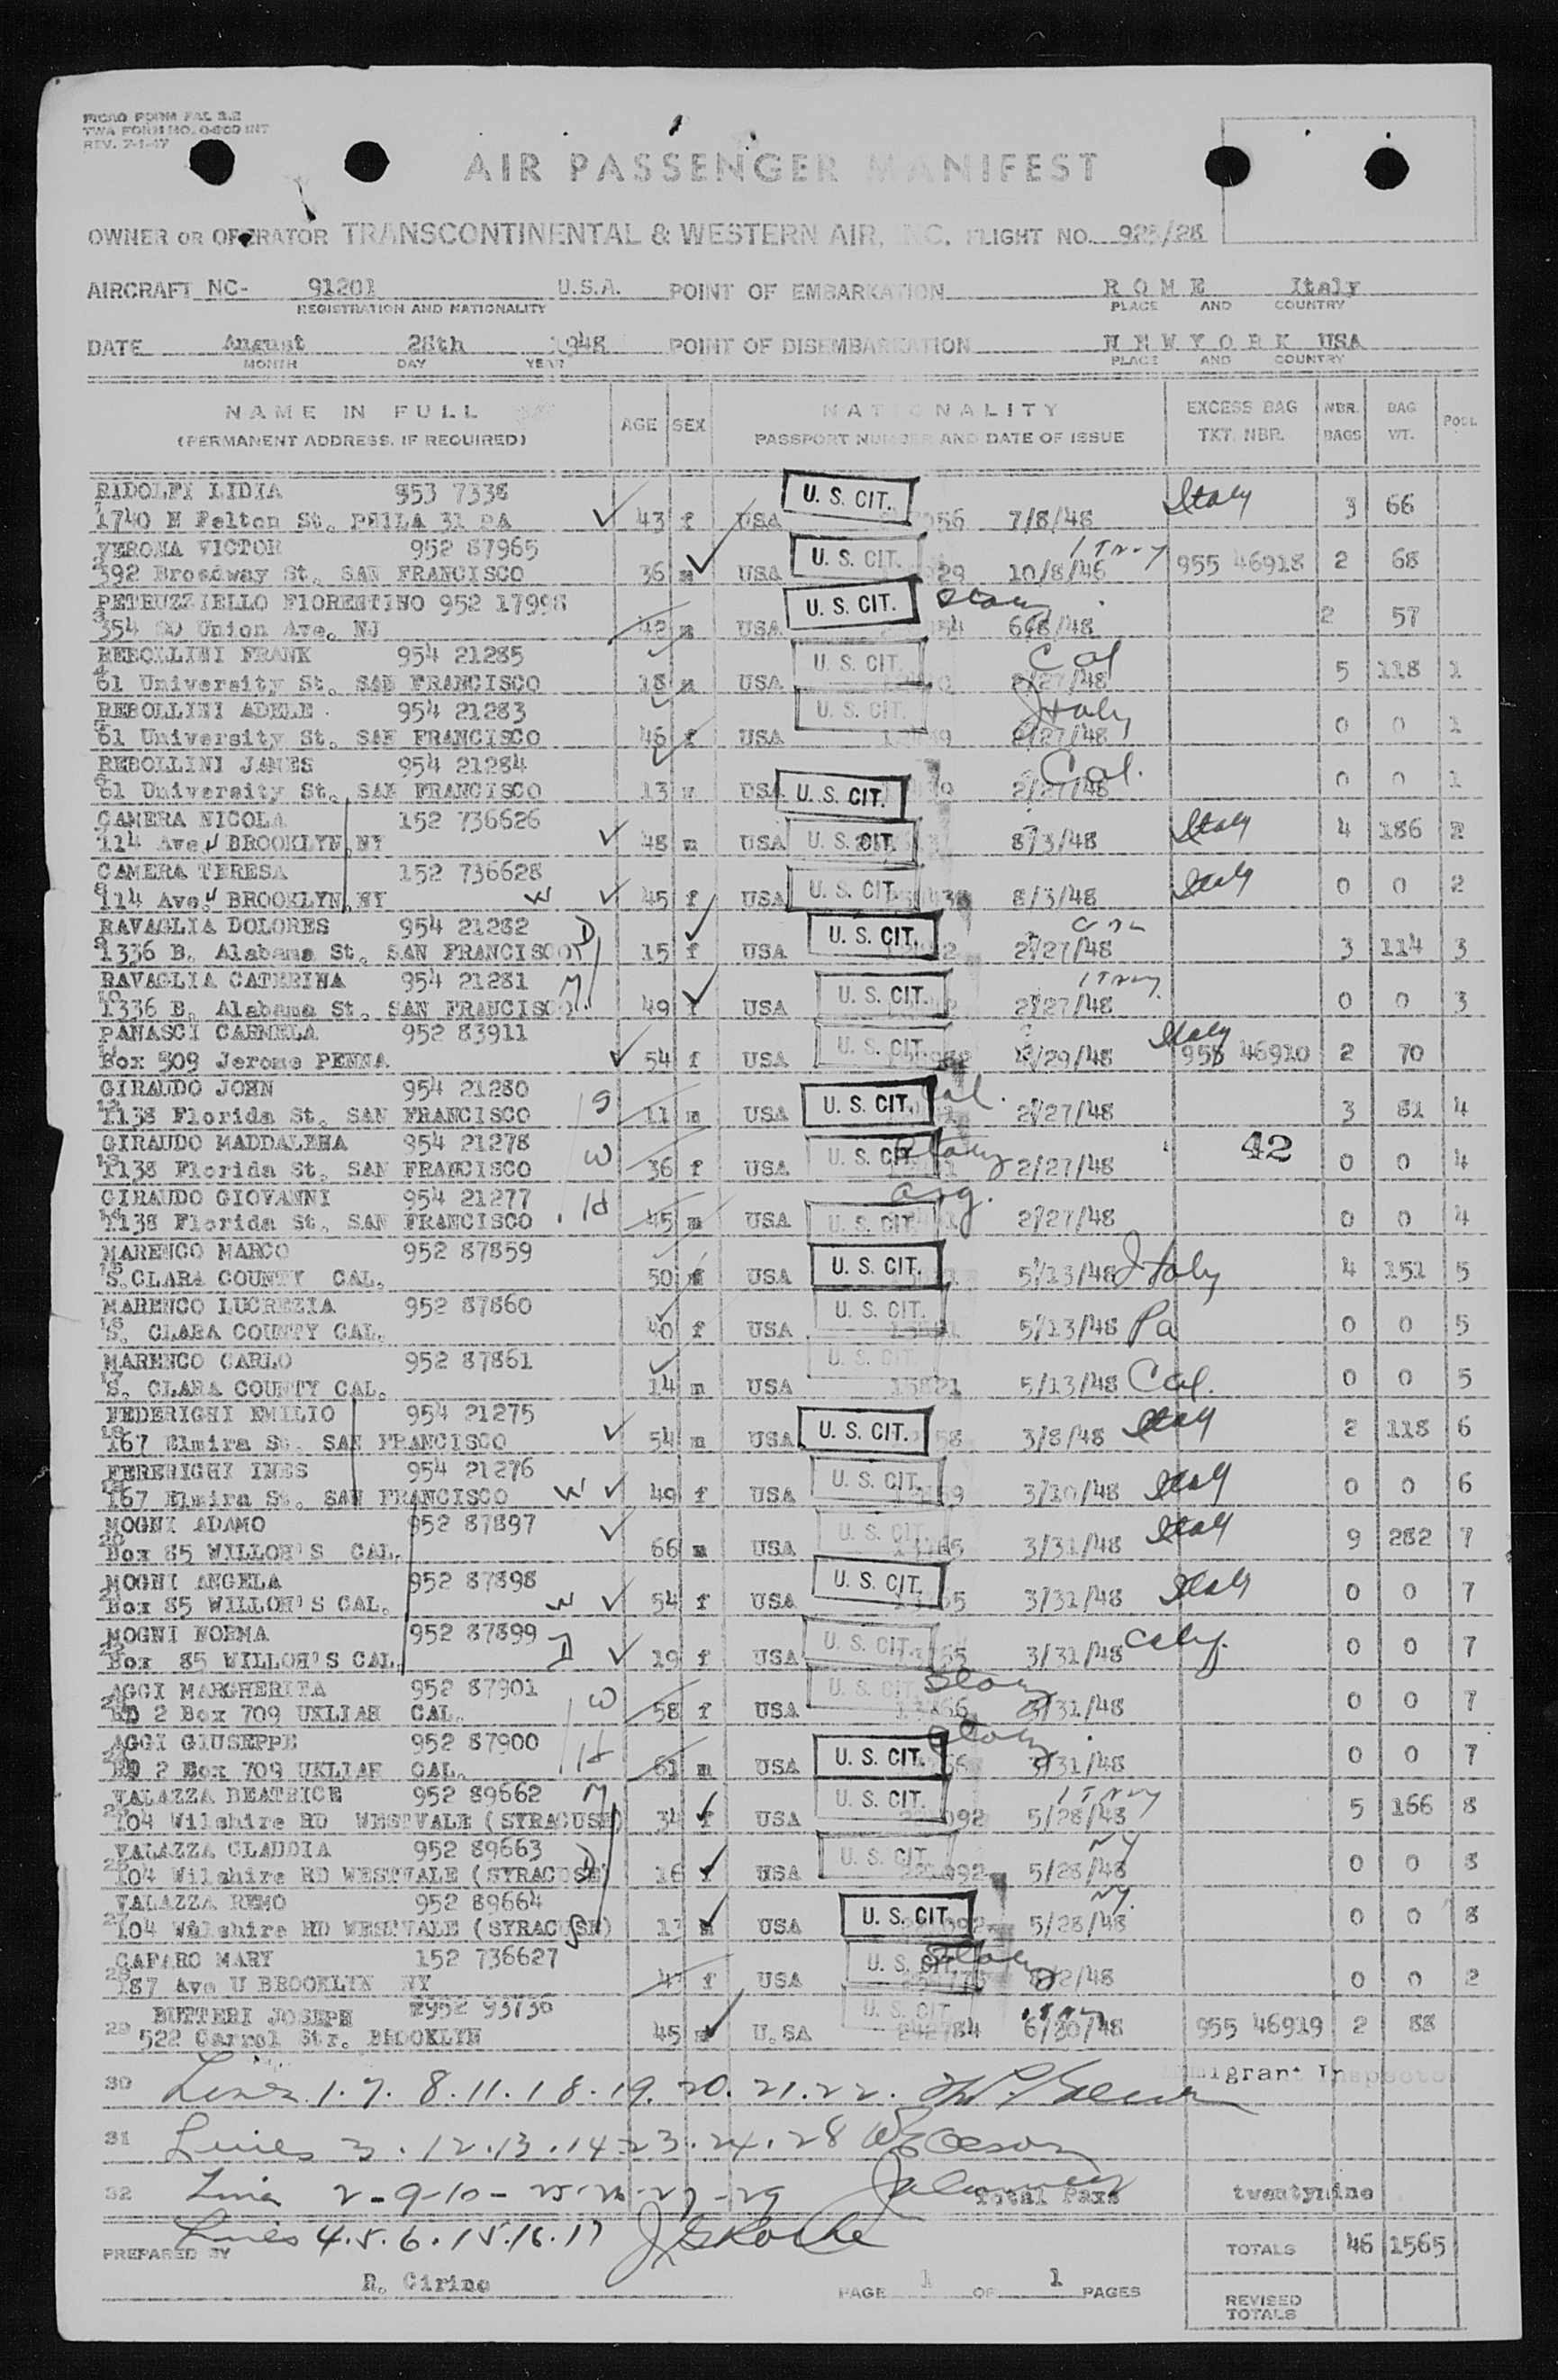 PICAO FORM FAL 3.2
TWA FORM NO. 0-800 INT
REV. 7-1-47
AIR PASSENGER MANIFEST
OWNER OR OPERATOR TRANSCONTINENTAL & WESTERN AIR, INC. FLIGHT NO. 928/28
AIRCRAFT NC- 91201 U.S.A. POINT OF EMBARKATION R O M E Italy
REGISTRATION AND NATIONALITY PLACE AND COUNTRY
DATE August 28th 1948 POINT OF DISEMBARKATION N E W Y O R K USA
MONTH DAY YEAR PLACE AND COUNTRY
NAME IN FULL NATIONALITY EXCESS BAG NBR. BAG
AGE SEX POOL
(PERMANENT ADDRESS, IF REQUIRED) PASSPORT NUMBER AND DATE OF ISSUE TKT. NBR. BAGS WT.
RIDOLFI LIDIA 953 7338 U. S. CIT. Italy 3 66
1 1740 N Felton St. PHILA 31 PA 43 f USA 56 7/8/48
VERONA VICTOR 952 87965 U. S. CIT. Italy 955 46918 2 68
2 592 Broadway St. SAN FRANCISCO 36 m USA 29 10/8/46
PETRUZZIELLO FIORENTINO 952 17998 U. S. CIT. Italy 2 57
3 354 SO Union Ave. NJ 42 m USA 54 6/8/48
REBOLLINI FRANK 954 21285 U. S. CIT. Cal 5 118 1
4 61 University St. SAN FRANCISCO 18 m USA 2/27/48
REBOLLINI ADELE 954 21283 U. S. CIT. Italy 0 0 1
5 61 University St. SAN FRANCISCO 46 f USA 2/27/48
REBOLLINI JAMES 954 21284 Cal. 0 0 1
6 61 University St. SAN FRANCISCO 13 m USA U. S. CIT. 2/27/48
CAMERA NICOLA 152 736626 Italy 4 186 2
7 114 Ave U BROOKLYN NY 48 m USA U. S. CIT. 8/3/48
CAMERA TERESA 152 736628 U. S. CIT. Italy 0 0 2
8 114 Ave U BROOKLYN NY W 45 f USA 8/3/48
RAVAGLIA DOLORES 954 21282 D U. S. CIT. 3 114 3
9 1336 B. Alabama St. SAN FRANCISCO 15 f USA 2/27/48
RAVAGLIA CATERINA 954 21281 M U. S. CIT. Italy 0 0 3
10 1336 B. Alabama St. SAN FRANCISCO 49 f USA 2/27/48
PANASCI CARMELA 952 83911 U. S. CIT. Italy 955 46910 2 70
11 Box 509 Jerome PENNA 54 f USA /29/48
GIRAUDO JOHN 954 21280 S U. S. CIT. Cal. 3 81 4
12 1138 Florida St. SAN FRANCISCO 11 m USA 2/27/48
GIRAUDO MADDALENA 954 21278 W U. S. CIT. Italy 42 0 0 4
13 1138 Florida St. SAN FRANCISCO 36 f USA 2/27/48
GIRAUDO GIOVANNI 954 21277 H U. S. CIT. Arg. 0 0 4
14 1138 Florida St. SAN FRANCISCO 45 m USA 2/27/48
MARENCO MARCO 952 87859 U. S. CIT. Italy 4 151 5
15 S. CLARA COUNTY CAL. 50 m USA 5/13/48
MARENCO LUCREZIA 952 87860 U. S. CIT. Pa 0 0 5
16 S. CLARA COUNTY CAL. 40 f USA 5/13/48
MARENCO CARLO 952 87861 U. S. CIT. Cal. 0 0 5
17 S. CLARA COUNTY CAL. 14 m USA 13821 5/13/48
FEDERIGHI EMILIO 954 21275 U. S. CIT. Italy 2 118 6
18 167 Elmira St. SAN FRANCISCO 54 m USA 58 3/8/48
FERERIGHI INES 954 21276 U. S. CIT. Italy 0 0 6
19 167 Elmira St. SAN FRANCISCO W 49 f USA 3/10/48
MOGNI ADAMO 952 87897 U. S. CIT. Italy 9 282 7
20 Box 85 WILLOH'S CAL. 66 m USA 3/31/48
MOGNI ANGELA 952 87898 U. S. CIT. Italy 0 0 7
21 Box 85 WILLOH'S CAL. W 54 f USA 3/31/48
MOGNI NORMA 952 87899 D U. S. CIT. Calif. 0 0 7
22 Box 85 WILLOH'S CAL. 19 f USA 3/31/48
AGGI MARGHERITA 952 87901 W U. S. CIT. Italy 0 0 7
23 RD 2 Box 709 UKLIAH CAL. 58 f USA 3/31/48
AGGI GIUSEPPE 952 87900 H U. S. CIT. Italy 0 0 7
24 RD 2 Box 709 UKLIAH CAL. 61 m USA 3/31/48
VALAZZA BEATRICE 952 89662 M U. S. CIT. Italy 5 166 8
25 104 Wilshire RD WESTVALE (SYRACUSE) 34 f USA 5/28/48
VALAZZA CLAUDIA 952 89663 D U. S. CIT. NY 0 0 8
26 104 Wilshire RD WESTVALE (SYRACUSE) 16 f USA 5/28/48
VALAZZA REMO 952 89664 S U. S. CIT. NY. 0 0 8
27 104 Wilshire RD WESTVALE (SYRACUSE) 13 m USA 5/28/48
CAFARO MARY 152 736627 U. S. CIT. Italy 0 0 2
28 187 Ave U BROOKLYN NY f USA /2/48
BUTTERI JOSEPH 952 93736 U. S. CIT. Italy 955 46919 2 88
29 522 Carrol Str. BROOKLYN 45 m U.SA 242784 6/20/48
Immigrant Inspector
30 Lines 1. 7. 8. 11. 18. 19. 20. 21. 22.
31 Lines 3. 12. 13. 14 23. 24. 28
32 Line 2-9-10-25-26-27-29 Total Paxs twentynine
Lines 4. 5. 6. 15. 16. 17
PREPARED BY R. Cirino
TOTALS 46 1565
PAGE 1 OF 1 PAGES
REVISED TOTALS